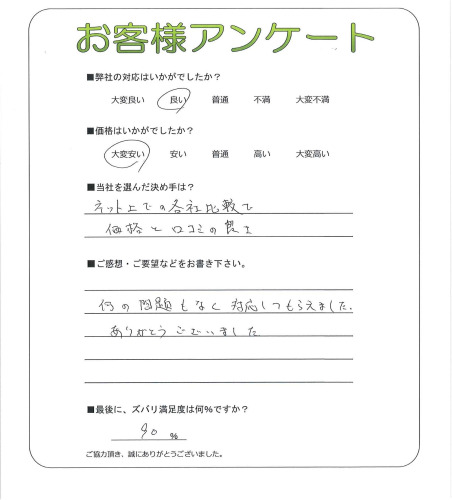 お客様アンケート
■弊社の対応はいかがでしたか?
大変良い 良い 普通 不満 大変不満
■価格はいかがでしたか?
大変安い 安い 普通 高い 大変高い
■当社を選んだ決め手は?
ネット上での各社比較で
価格と口コミの良さ
■ご感想・ご要望などをお書き下さい。
何の問題もなく対応してもらえました.
ありがとうございました
■最後に、ズバリ満足度は何%ですか?
90 %
ご協力頂き、誠にありがとうございました。